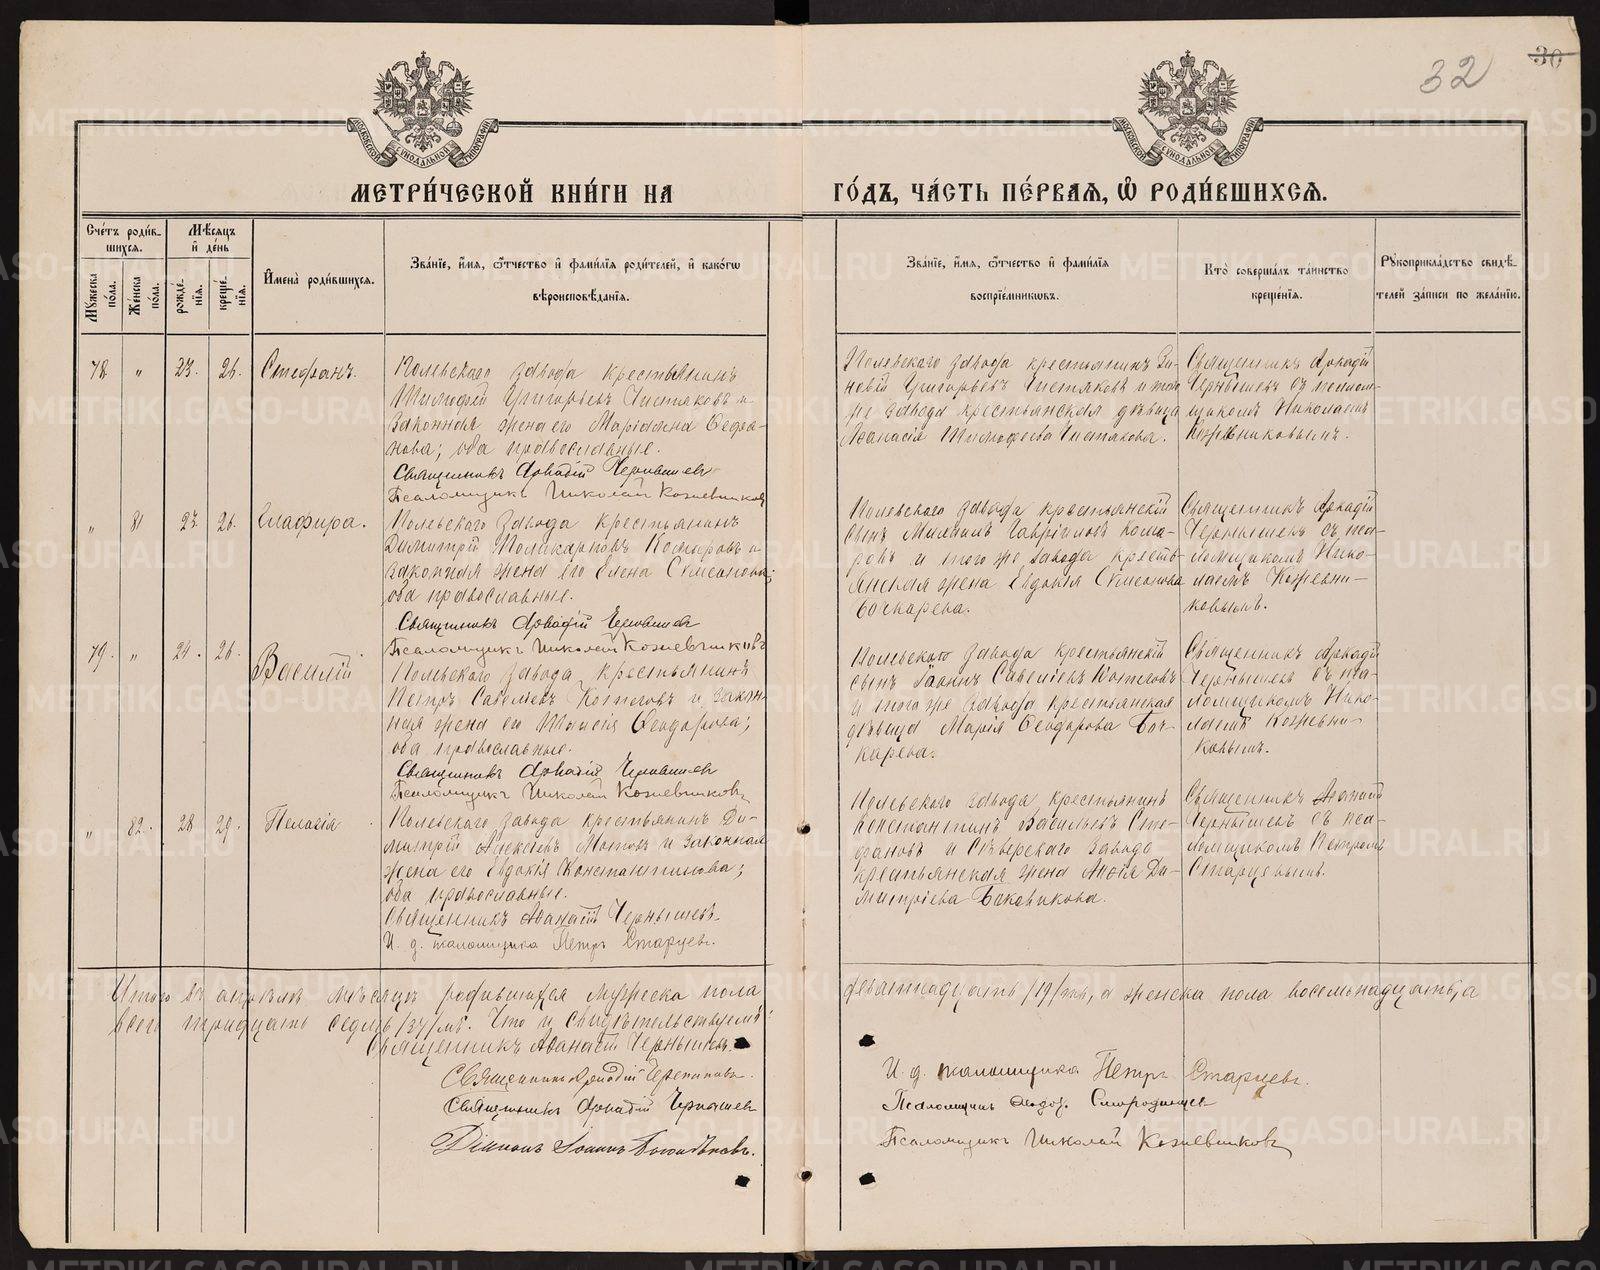 32
30
МОСКОВСКОЙ СѴНОДАЛЬНОЙ ТИПОГРАФІИ
МОСКОВСКОЙ СѴНОДАЛЬНОЙ ТИПОГРАФІИ
МЕТРИ́ЧЕСКОЙ КНИ́ГИ НА
ГО́ДЪ, ЧА́СТЬ ПЕ́РВАЯ, Ѿ РОДИ́ВШИХСЯ.
Сче́тъ роди́в-
шихся.
Мѣ́сяцъ
и̂ де́нь
Мꙋ́жеска по́ла.
Же́нска по́ла.
рожде́-
нїѧ.
креще́-
нїѧ.
И҆мена̀ роди́вшихся.
Зва́нїе, и҆́мѧ, ѻ҆́тчество и҆ фами́лїѧ роди́телей, и҆ како́гѡ
вѣроисповѣ́данїѧ.
Зва́нїе, и҆́мѧ, ѻ҆́тчество и҆ фами́лїѧ
воспрїе́мникѡвъ.
Кто̀ соверша́лъ та́инство
креще́нїѧ.
Рꙋкоприкла́дство свидѣ́-
телей за́писи по жела́нїю.
78 " 23. 26. Стефанъ.
Полевского завода крестьянинъ
Григорьевъ Чистяковъ и
законная жена его Маріамна
оба православные.
Священникъ Аркадій Чернышев
Псаломщикъ Николай Кожевников
Полевского завода крестьянинъ Зи-
новій Григорьевъ Чистяковъ и того
же завода крестьянская дѣвица
Аѳанасія Тимофеева Чистякова.
Священникъ Аркадій
Чернышевъ съ псалом-
щикомъ Николаемъ
Кожевниковымъ.
" 81 23 26. Глафира.
Полевского завода крестьянинъ
Димитрій Поликарповъ Комаровъ и
законная жена его Елена Симеонова;
оба православные.
Священникъ Аркадій Чернышев
Псаломщикъ Николай Кожевниковъ
Полевского завода крестьянскій
сынъ Михаилъ Гавріиловъ Кома-
ровъ и того же завода кресть-
янская жена Евдокія Симеонова
Бочкарева.
Священникъ Аркадій
Чернышевъ съ пса-
ломщикомъ Нико-
лаемъ Кожевни-
ковымъ.
79. " 24. 26. Василій
Полевского завода крестьянинъ
Петръ Савеліевъ и закон-
ная жена его Таисія Ѳеодорова;
оба православные.
Священникъ Аркадій Чернышев
Псаломщикъ Николай Кожевниковъ
Полевского завода крестьянскій
сынъ Іоаннъ Савеліевъ
и того же завода крестьянская
дѣвица Марія Ѳеодорова Боч-
карева.
Священникъ Аркадій
Чернышевъ съ пса-
ломщикомъ Нико-
лаемъ Кожевни-
ковымъ.
" 82. 28 29. Пелагія
Полевского завода крестьянинъ Ди-
митрій Алексѣевъ и законная
жена его Евдокія Константинова;
оба православные.
Священникъ Аѳанасій Чернышевъ.
И. д. псаломщика Петръ Старцев.
Полевского завода крестьянинъ
Константинъ Васильевъ Сте-
фановъ и Сѣверскаго завода
крестьянская жена Ди-
митріева
Священникъ Аѳанасій
Чернышевъ съ пса-
ломщикомъ Петромъ
Старцевымъ.
Итого въ апрѣлѣ мѣсяцѣ родившихся мужеска пола девятнадцать /19/ть, а женска пола восемьнадцать, а
всего тридцать седмь /37/мь. Что и свидѣтельствуемъ:
Священникъ Аѳанасій Чернышевъ.
Священникъ Аркадій
Священникъ Аркадій Чернышев
Діаконъ Іоаннъ
И. д. псаломщика Петръ Старцевъ.
Псаломщикъ Смородинцев
Псаломщикъ Николай Кожевниковъ